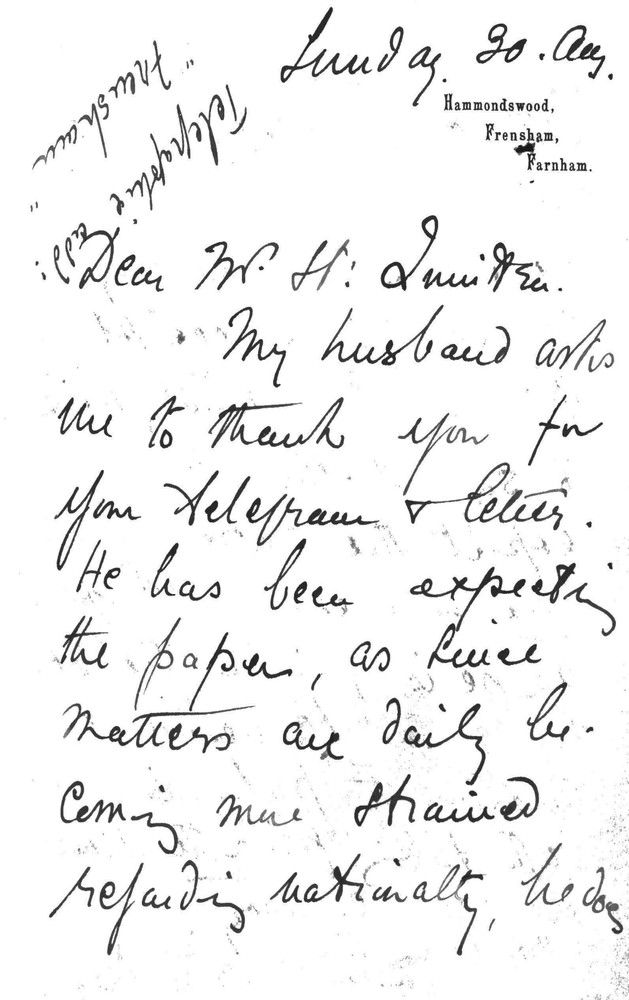 Sunday. 30. Aug.
Hammondswood,
Frensham,
Farnham.
Telegraphic Add:
"Frensham"
Dear Mr. St:
My husband asks
me to thank you for
your telegram & letter.
He has been expecting
the papers, as since
matters are daily be-
coming more strained
regarding nationalty, he does